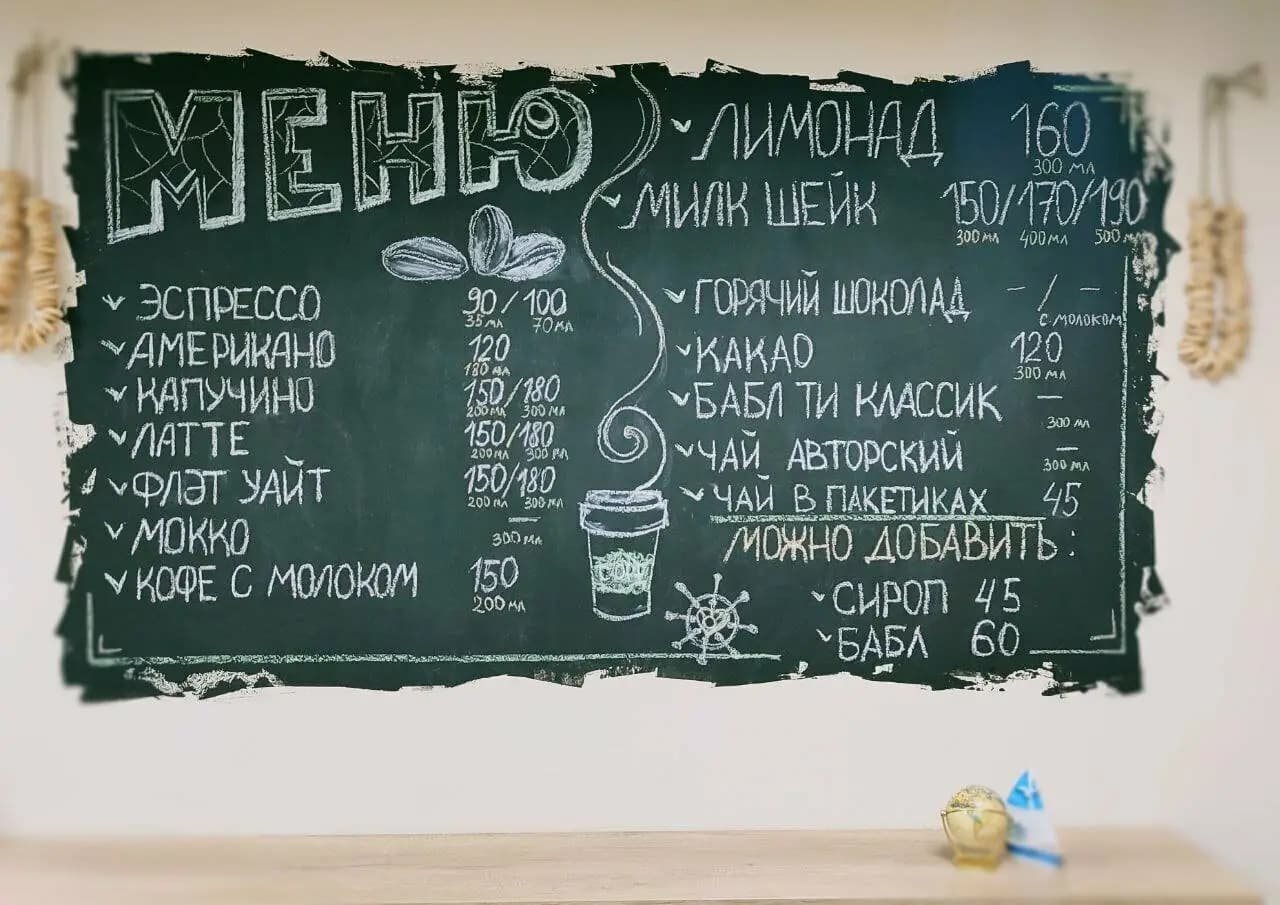 МЕНЮ
ЭСПРЕССО 90/100
35 мл 70 мл
АМЕРИКАНО 120
180 мл
КАПУЧИНО 150/180
200 мл 300 мл
ЛАТТЕ 150/180
200 мл 300 мл
ФЛЭТ УАЙТ 150/180
200 мл 300 мл
МОККО —
300 мл
КОФЕ С МОЛОКОМ 150
200 мл
ЛИМОНАД 160
300 мл
МИЛК ШЕЙК 150/170/190
300 мл 400 мл 500 мл
ГОРЯЧИЙ ШОКОЛАД – / –
с молоком
КАКАО 120
300 мл
БАБЛ ТИ КЛАССИК —
300 мл
ЧАЙ АВТОРСКИЙ —
300 мл
ЧАЙ В ПАКЕТИКАХ 45
МОЖНО ДОБАВИТЬ:
СИРОП 45
БАБЛ 60